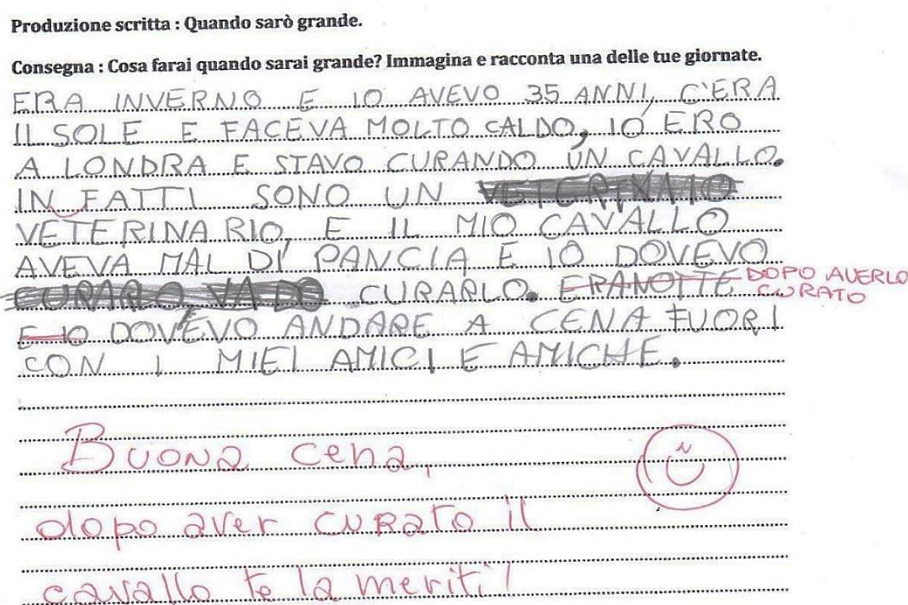 Produzione scritta : Quando sarò grande.
Consegna : Cosa farai quando sarai grande? Immagina e racconta una delle tue giornate.
ERA INVERNO E IO AVEVO 35 ANNI, C'ERA
IL SOLE E FACEVA MOLTO CALDO, IO ERO
A LONDRA E STAVO CURANDO UN CAVALLO.
IN FATTI SONO UN VETERINAIO
VETERINARIO, E IL MIO CAVALLO
AVEVA MAL DI PANCIA E IO DOVEVO
CURARLO, VADO CURARLO. ERA NOTTE DOPO AVERLO
CURATO
E IO DOVEVO ANDARE A CENA FUORI
CON I MIEI AMICI E AMICHE.
Buona cena,
dopo aver curato il
cavallo te la meriti!